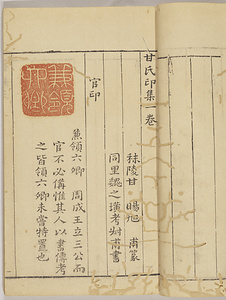 甘氏印集一卷
秣陵甘 暘旭 甫篆
同里魏之璜考叔甫書
官印
兼領六卿
兼領六卿 周成王立三公而
官不必備惟其人以書傳考
之皆領六卿未嘗特置也